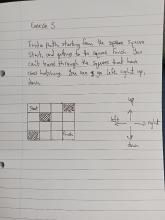 Exercise 5
Find a path, starting from the square
Start, and getting to the square Finish. You
can't travel through the squares that have
cross hatching. You can go left, right, up,
down.
Start
Finish
up
left
right
down